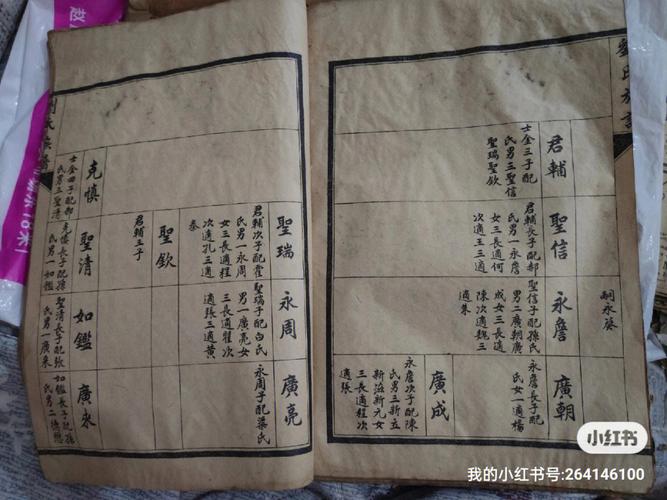 劉氏族譜
君輔
士金三子配
氏男三聖信
聖瑞聖欽
聖信
君輔長子配郝
氏男一永詹
女三長適何
次適王三適
永詹
聖信子配孫氏
男二廣朝廣
成女三長適
陳次適魏三
適朱
嗣永葵
廣朝
永詹長子配
氏女一適楊
廣成
永詹次子配陳
氏男三新立
新溢新元女
三長適程次
適張
聖瑞
君輔次子配霍
氏男一永周
女三長適程
次適孔三適
秦
聖欽
君輔三子
永周
聖瑞子配白氏
男一廣亮女
三長適程次
適張三適黄
廣亮
永周子配梁氏
克慎
士金四子配郝
氏男三聖清
聖清
克慎長子配孫
氏男一如鑑
如鑑
聖清長子配張
氏男一廣來
廣來
如鑑長子配孫
氏男二德懋
小红书
我的小红书号:264146100